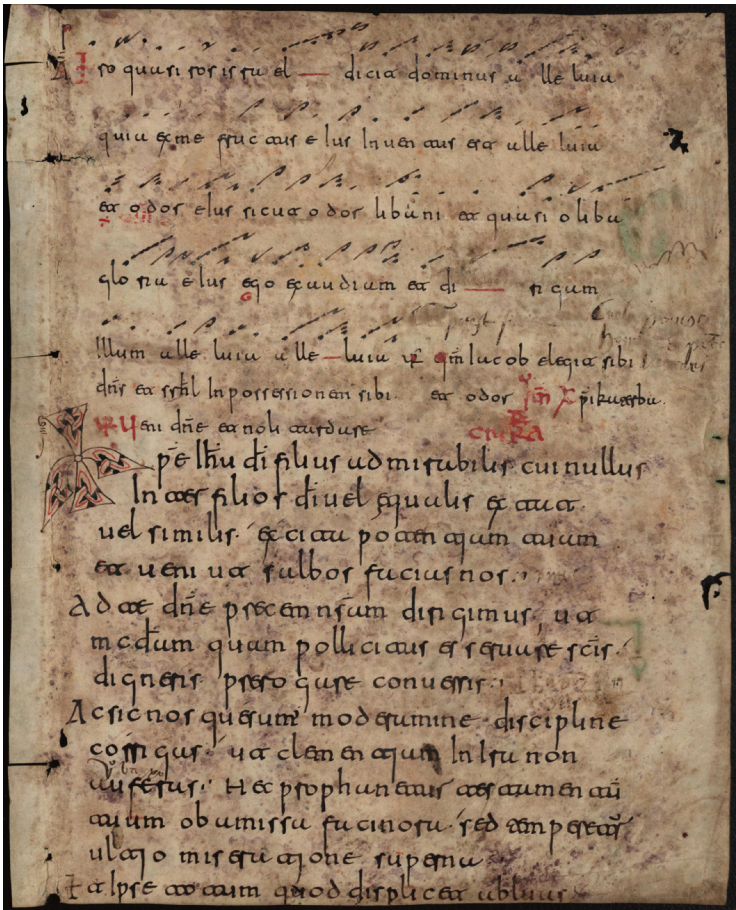 A I ero quasi ros israel dicit dominus alleluia
quia ex me fructus eius Inuentus est alleluia
et odor eius sicut odor libani et quasi oliba
gloria eius ego exaudiam et di rigam
Illum alleluia alleluia VR qnm Iacob elegit sibi
dns et srhl In possessionem sibi. et odor
VR Ueni dne et noli tardare
Xpe Ihu di filius admirabilis cui nullus
Inter filios di uel equalis extat
uel similis. excita potentiam tuam
et ueni ut salbos facias nos.
Ad te dne precem nsam dirigimus, ut
modum quam pollicitus es seruare scis.
digneris prerogare conuersis.
Ac sic nos quesumus moderamine discipline
corrigas. ut clementiam In Ira non
auferas. Hec prophanatis testamentū
tuum ob amissa facinora. sed temperetur
ultio miseratione superna.
Et Ipse totum quod displicet abluas